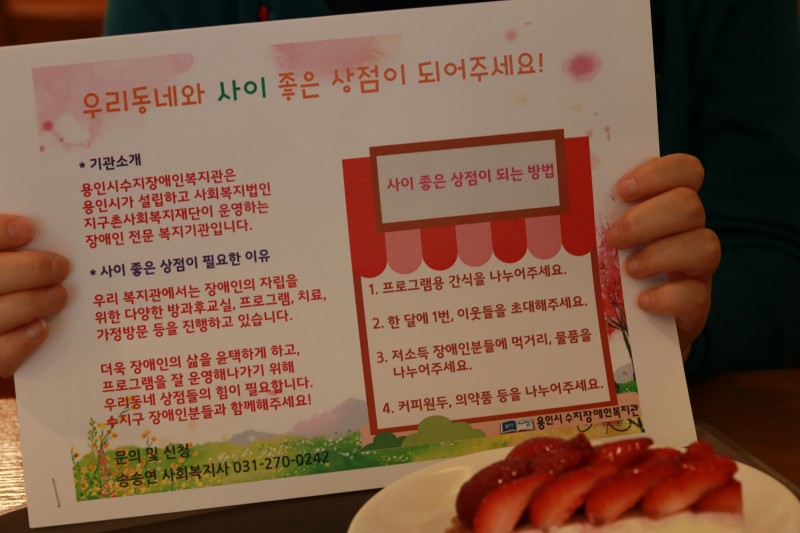 우리동네와 사이 좋은 상점이 되어주세요!
* 기관소개
용인시수지장애인복지관은
용인시가 설립하고 사회복지법인
지구촌사회복지재단이 운영하는
장애인 전문 복지기관입니다.
* 사이 좋은 상점이 필요한 이유
우리 복지관에서는 장애인의 자립을
위한 다양한 방과후교실, 프로그램, 치료,
가정방문 등을 진행하고 있습니다.
더욱 장애인의 삶을 윤택하게 하고,
프로그램을 잘 운영해나가기 위해
우리동네 상점들의 힘이 필요합니다.
수지구 장애인분들과 함께해주세요!
문의 및 신청
송송연 사회복지사 031-270-0242
사이 좋은 상점이 되는 방법
1. 프로그램용 간식을 나누어주세요.
2. 한 달에 1번, 이웃들을 초대해주세요.
3. 저소득 장애인분들에 먹거리, 물품을
나누어주세요.
4. 커피원두, 의약품 등을 나누어주세요.
용인시 수지장애인복지관